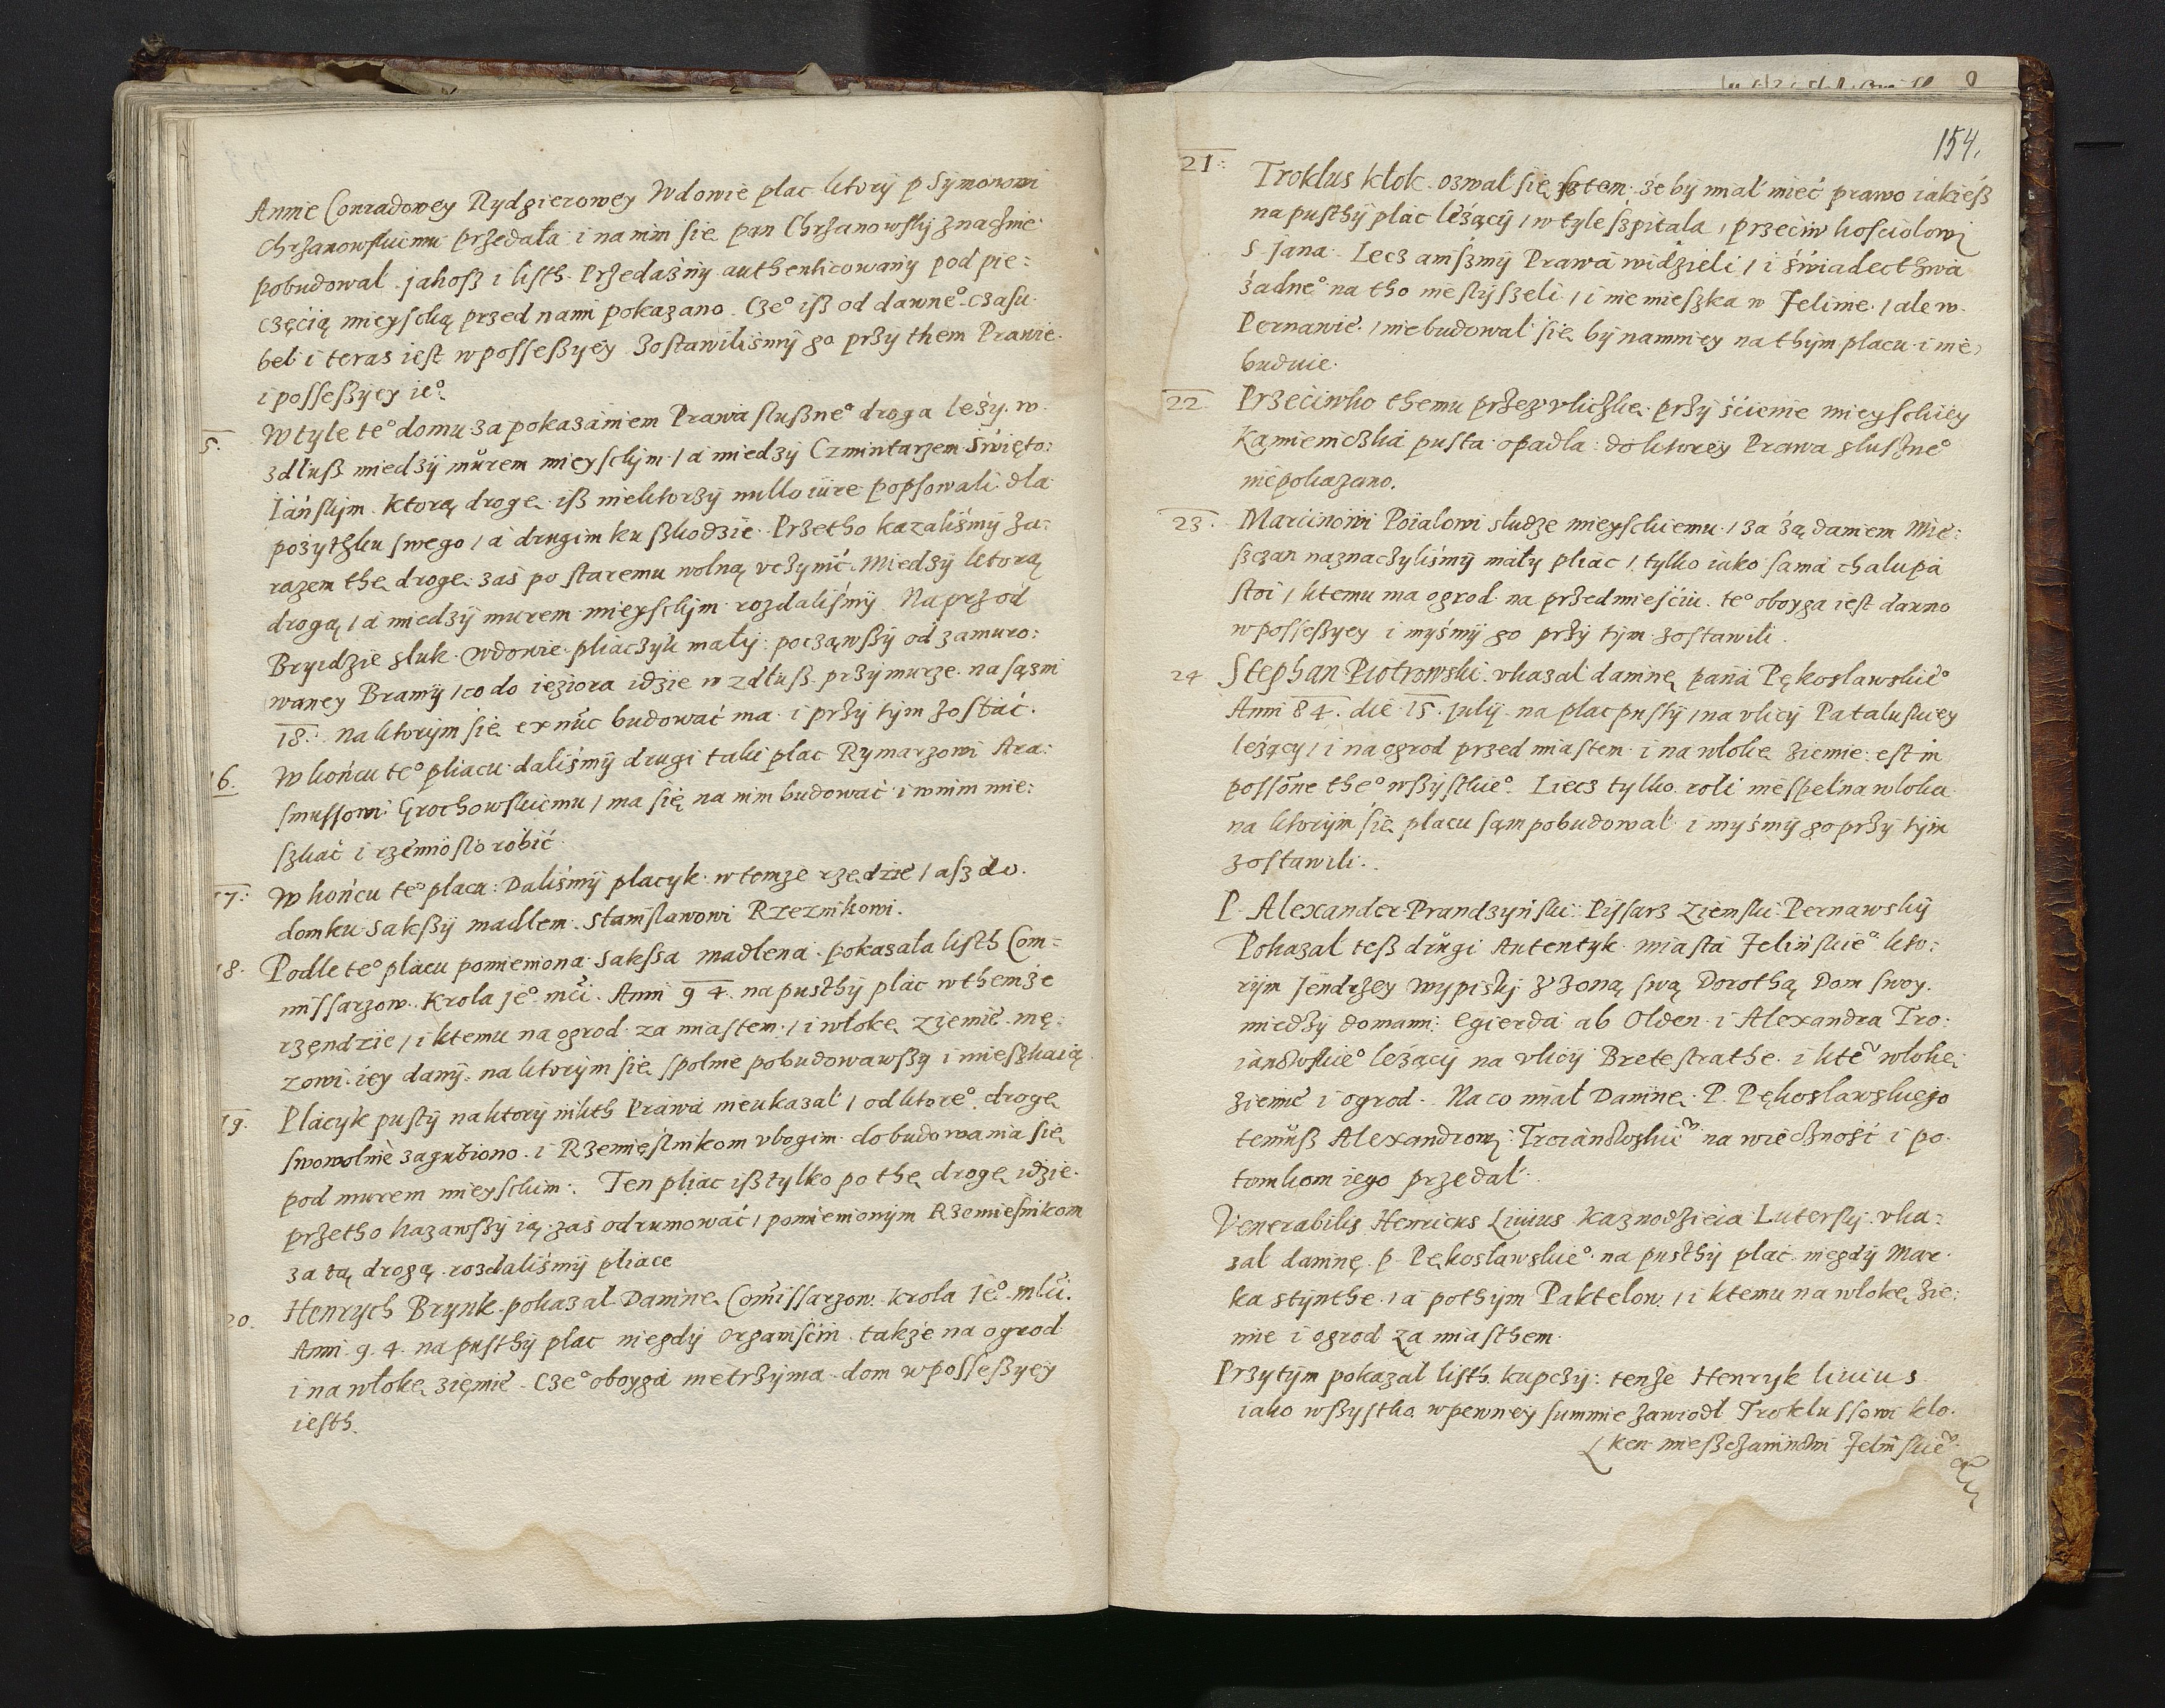 Annie Conradowey Rydgierowey Wdowie plac ktory p Symonowi
Chrzanowskiemu przedała i na nim się pan Chrzanowsky znacznie
pobudował. jakosz i listh Przedażny authenticowany pod pie=
częcią mieyscką przed nami pokazano. Cze° isz od dawne° czasu
beł i teras iest w possessyey zostawilismy go przy them Prawie
i possessyey ie°.
5. W tyle te° domu za pokazaniem Prawa słuszne° droga leży w
zdłusz miedzy murem mieysckym / a miedzy Czmintarzem święto:
Jańskym. Ktorą drogę isz niektorzy nullo iure popsowali dla
pożythku swego / a drugim ku szkodzie. Przetho kazaliśmy za:
razem thę drogę zas po staremu wolną vczynić. Miedzy ktorą
drogą / a miedzy murem mieysckym rozdalismy. Naprzod
Bryidzie skuk wdowie pliaczyk mały: począwszy od zamuro:
waney Bramy / co do ieziora idzie w zdłusz przy murze na sązni
18. na ktorym się ex nuc budować ma i przy tym zostać.
16. W końcu te° pliacu dalismy drugi taki plac Rymarzowi Ara:
smussowi Grochowskiemu / ma się na nim budować i w nim mie:
szkać i rzemiosło robić
17. W końcu te° placu: Dalismy placyk w temze rzędzie / asz do
domku sakszy madlem. Stanislawowi Rzeznikowi.
18. Podle te° placu pomieniona saksza madlena pokazała listh Com=
missarzow Krola Je° mći. Anni 94. na pusthy plac w themże
rzęndzie / i ktemu na ogrod za miastem / i włokę zięmie mę:
zowi iey dany: na ktorym się społnie pobudowawszy i mieszkaią
19. Placyk pusty na ktory nikth Prawa nieukazał / od ktore° drogę
swowolnie zagubiono i Rzemięślnikom vbogim do budowania się
pod murem mieysckim: Ten pliac isz tylko po thę drogę idzie
przetho kazawszy ią zas odrumować / pomienionym Rzemieśnikom
za tą drogą rozdalismy pliace
20. Henrych Brynk pokazał Daninę Comissarzow Krola Je° mći.
Anni 9.4. na pusthy plac niegdy organiscin takze na ogrod
i na włokę zięmie. Cze° oboyga nietrzyma dom w possessyey
iesth.
154.
21: Troklus klok ozwał się stem że by miał mieć prawo iakiesz
na pusthy plac leżący / w tyle szpitala / przeciw kosciolowi
S Jana. Lecz aniszmy Prawa widzieli / i świadecthwa
żadne° na tho niesłyszeli / i nie mieszka w Felinie / ale w
Pernawie / niebudował się by namniey na thym placu i nie
buduie.
22. Przeciwko themu przez vliczkę przy ścienie mieysckiey
Kamieniczka pusta opadla: do ktorey Prawa słuszne°
niepokazano.
23. Marcinowi Poialowi słudze mieysckiemu / za żądaniem Mie:
szczan naznaczylismy mały pliac / tylko iako sama chalupa
stoi / ktemu ma ogrod na przedmieściu te° oboyga iest dawno
w possessyey i myśmy go przy tym zostawili.
24 Stephan Piotrowski vkazał daninę pana Pękoslawskie°
Anni 84. die 15 july na plac pusty / na vlicy Pataluskiey
leżący / i na ogrod przed miastem i na włokę ziemie: est in
possōne the° wszystkie°. Liecz tylko roli niespełna włoka
na ktorym się placu sąm pobudował i myśmy go przy tym
zostawili.
P. Alexander Prandzyński: Pissarz Ziemski Pernawsky
Pokazał tesz drugi Autentyk miasta Felinskie° kto:
rym Jendrzey wypisky z żoną swą Dorothą Dom swoy
miedzy domami: Egierda ab Olden i Alexandra Tro:
ianowskie° leżący na vlicy Bretestrathe i kte° włokę
ziemie i ogrod. Na co miał Daninę P. Pękoslawskiego
temusz Alexandrowi Troianowskie° na wiecżność i po
tomkom iego przedał.
Venerabilis Henricus Liuius Kaznodzieia Lutersky vka:
zał daninę p Pękoslawskie° na pusthy plac niegdy Mar
ka stynthe / a pothym Paktelow / i ktemu na włokę zie:
mie i ogrod za miasthem
Przytym pokazał listh kupczy: tenże Henryk liuius
iako wszystko w pewney summie zawiodł Troklussowi klo.
ken mieszczaninowi Felinskie°